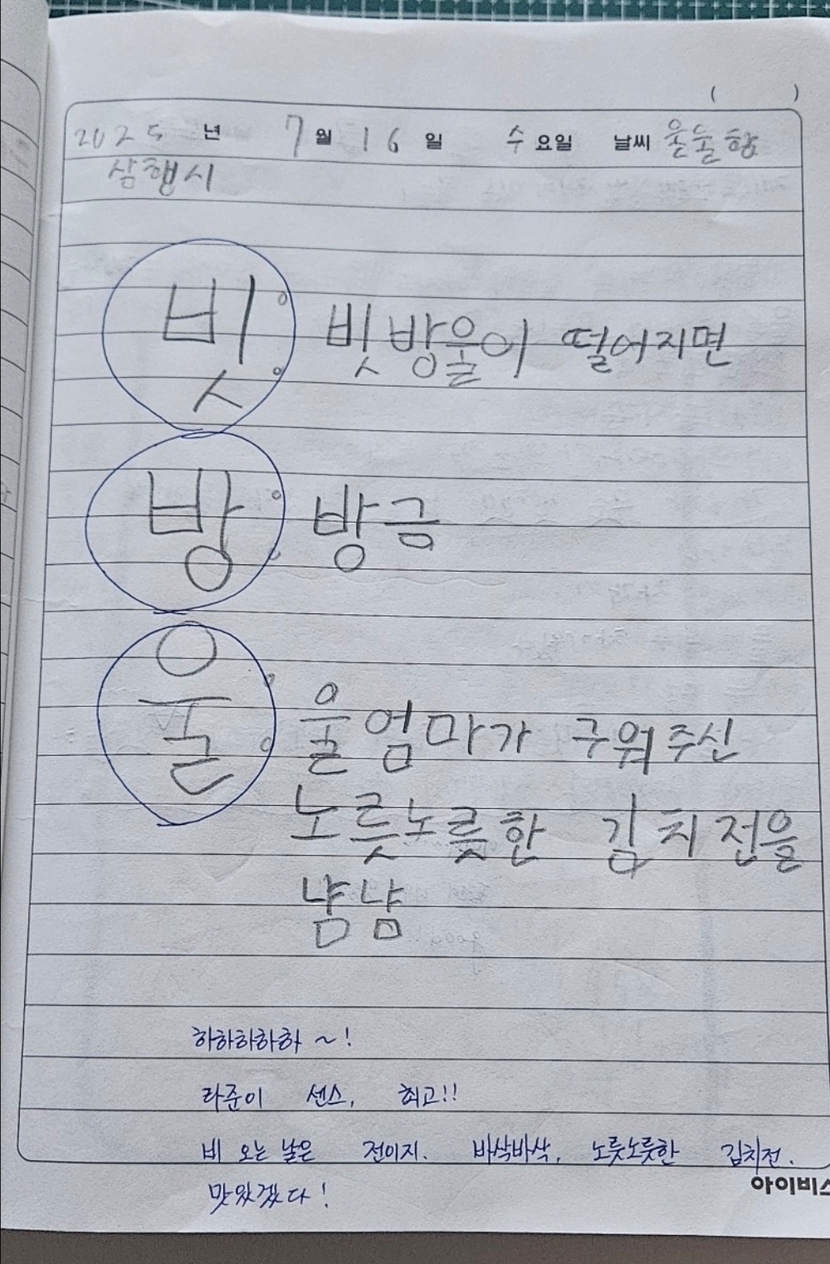 ( )
2025 년 7 월 16 일 수 요일 날씨 울퉁함
삼행시
빗: 빗방울이 떨어지면
방: 방금
울: 울엄마가 구워주신
노릇노릇한 김치전을
냠냠
하하하하하 ~!
라준이 센스, 최고!!
비 오는 날은 전이지. 바삭바삭, 노릇노릇한 김치전.
맛있겠다!
아이비스